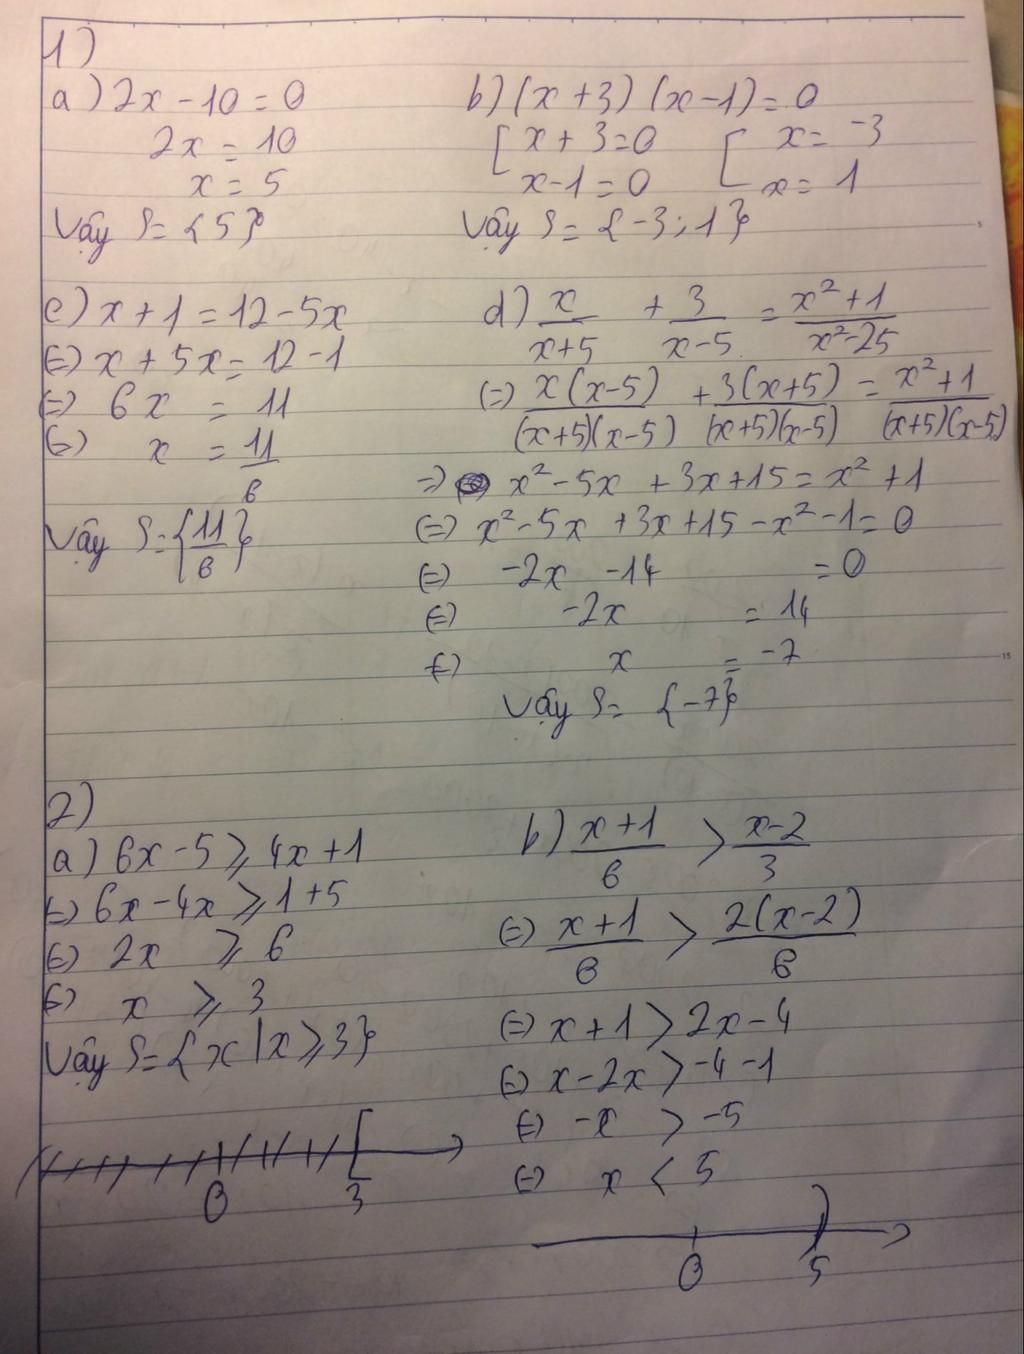 1)
a) 2x - 10 = 0
2x = 10
x = 5
Vậy S = {5}
b) (x + 3) (x - 1) = 0
[ x + 3 = 0 [ x = -3
x - 1 = 0 x = 1
Vậy S = {-3; 1}
c) x + 1 = 12 - 5x
(=) x + 5x = 12 - 1
(=) 6x = 11
(=) x = 11/6
Vậy S = {11/6}
d) x/(x+5) + 3/(x-5) = (x²+1)/(x²-25)
(=) x(x-5)/(x+5)(x-5) + 3(x+5)/(x+5)(x-5) = (x²+1)/(x+5)(x-5)
=) x² - 5x + 3x + 15 = x² + 1
(=) x² - 5x + 3x + 15 - x² - 1 = 0
(=) -2x - 14 = 0
(=) -2x = 14
(=) x = -7
Vậy S = {-7}
2)
a) 6x - 5 ⩾ 4x + 1
(=) 6x - 4x ⩾ 1 + 5
(=) 2x ⩾ 6
(=) x ⩾ 3
Vậy S = {x | x ⩾ 3}
0 3
b) (x+1)/6 > (x-2)/3
(=) (x+1)/6 > 2(x-2)/6
(=) x + 1 > 2x - 4
(=) x - 2x > -4 - 1
(=) -x > -5
(=) x < 5
0 5
5
15